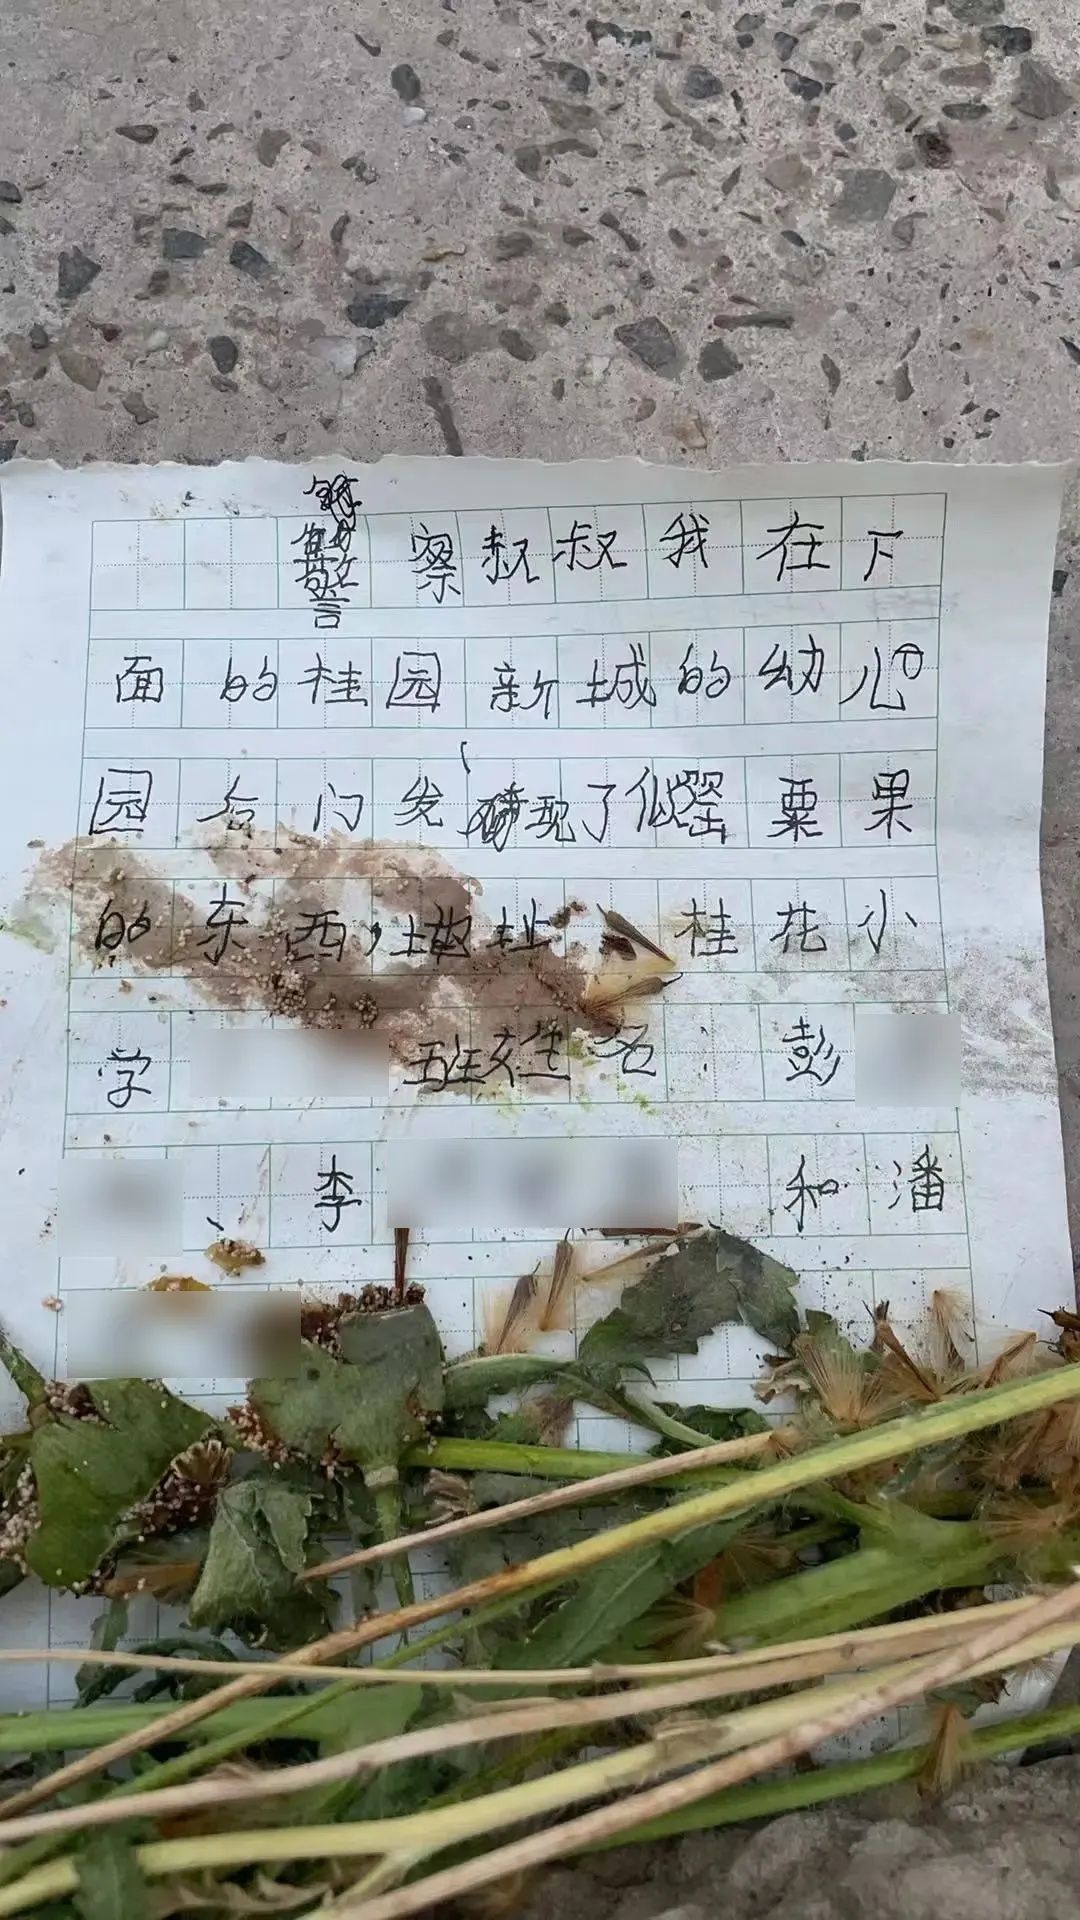 警察叔叔我在下
面的桂园新城的幼儿
园后门发现了似罂粟果
的东西,地址 桂花小
学 班姓名: 彭
、李 和潘